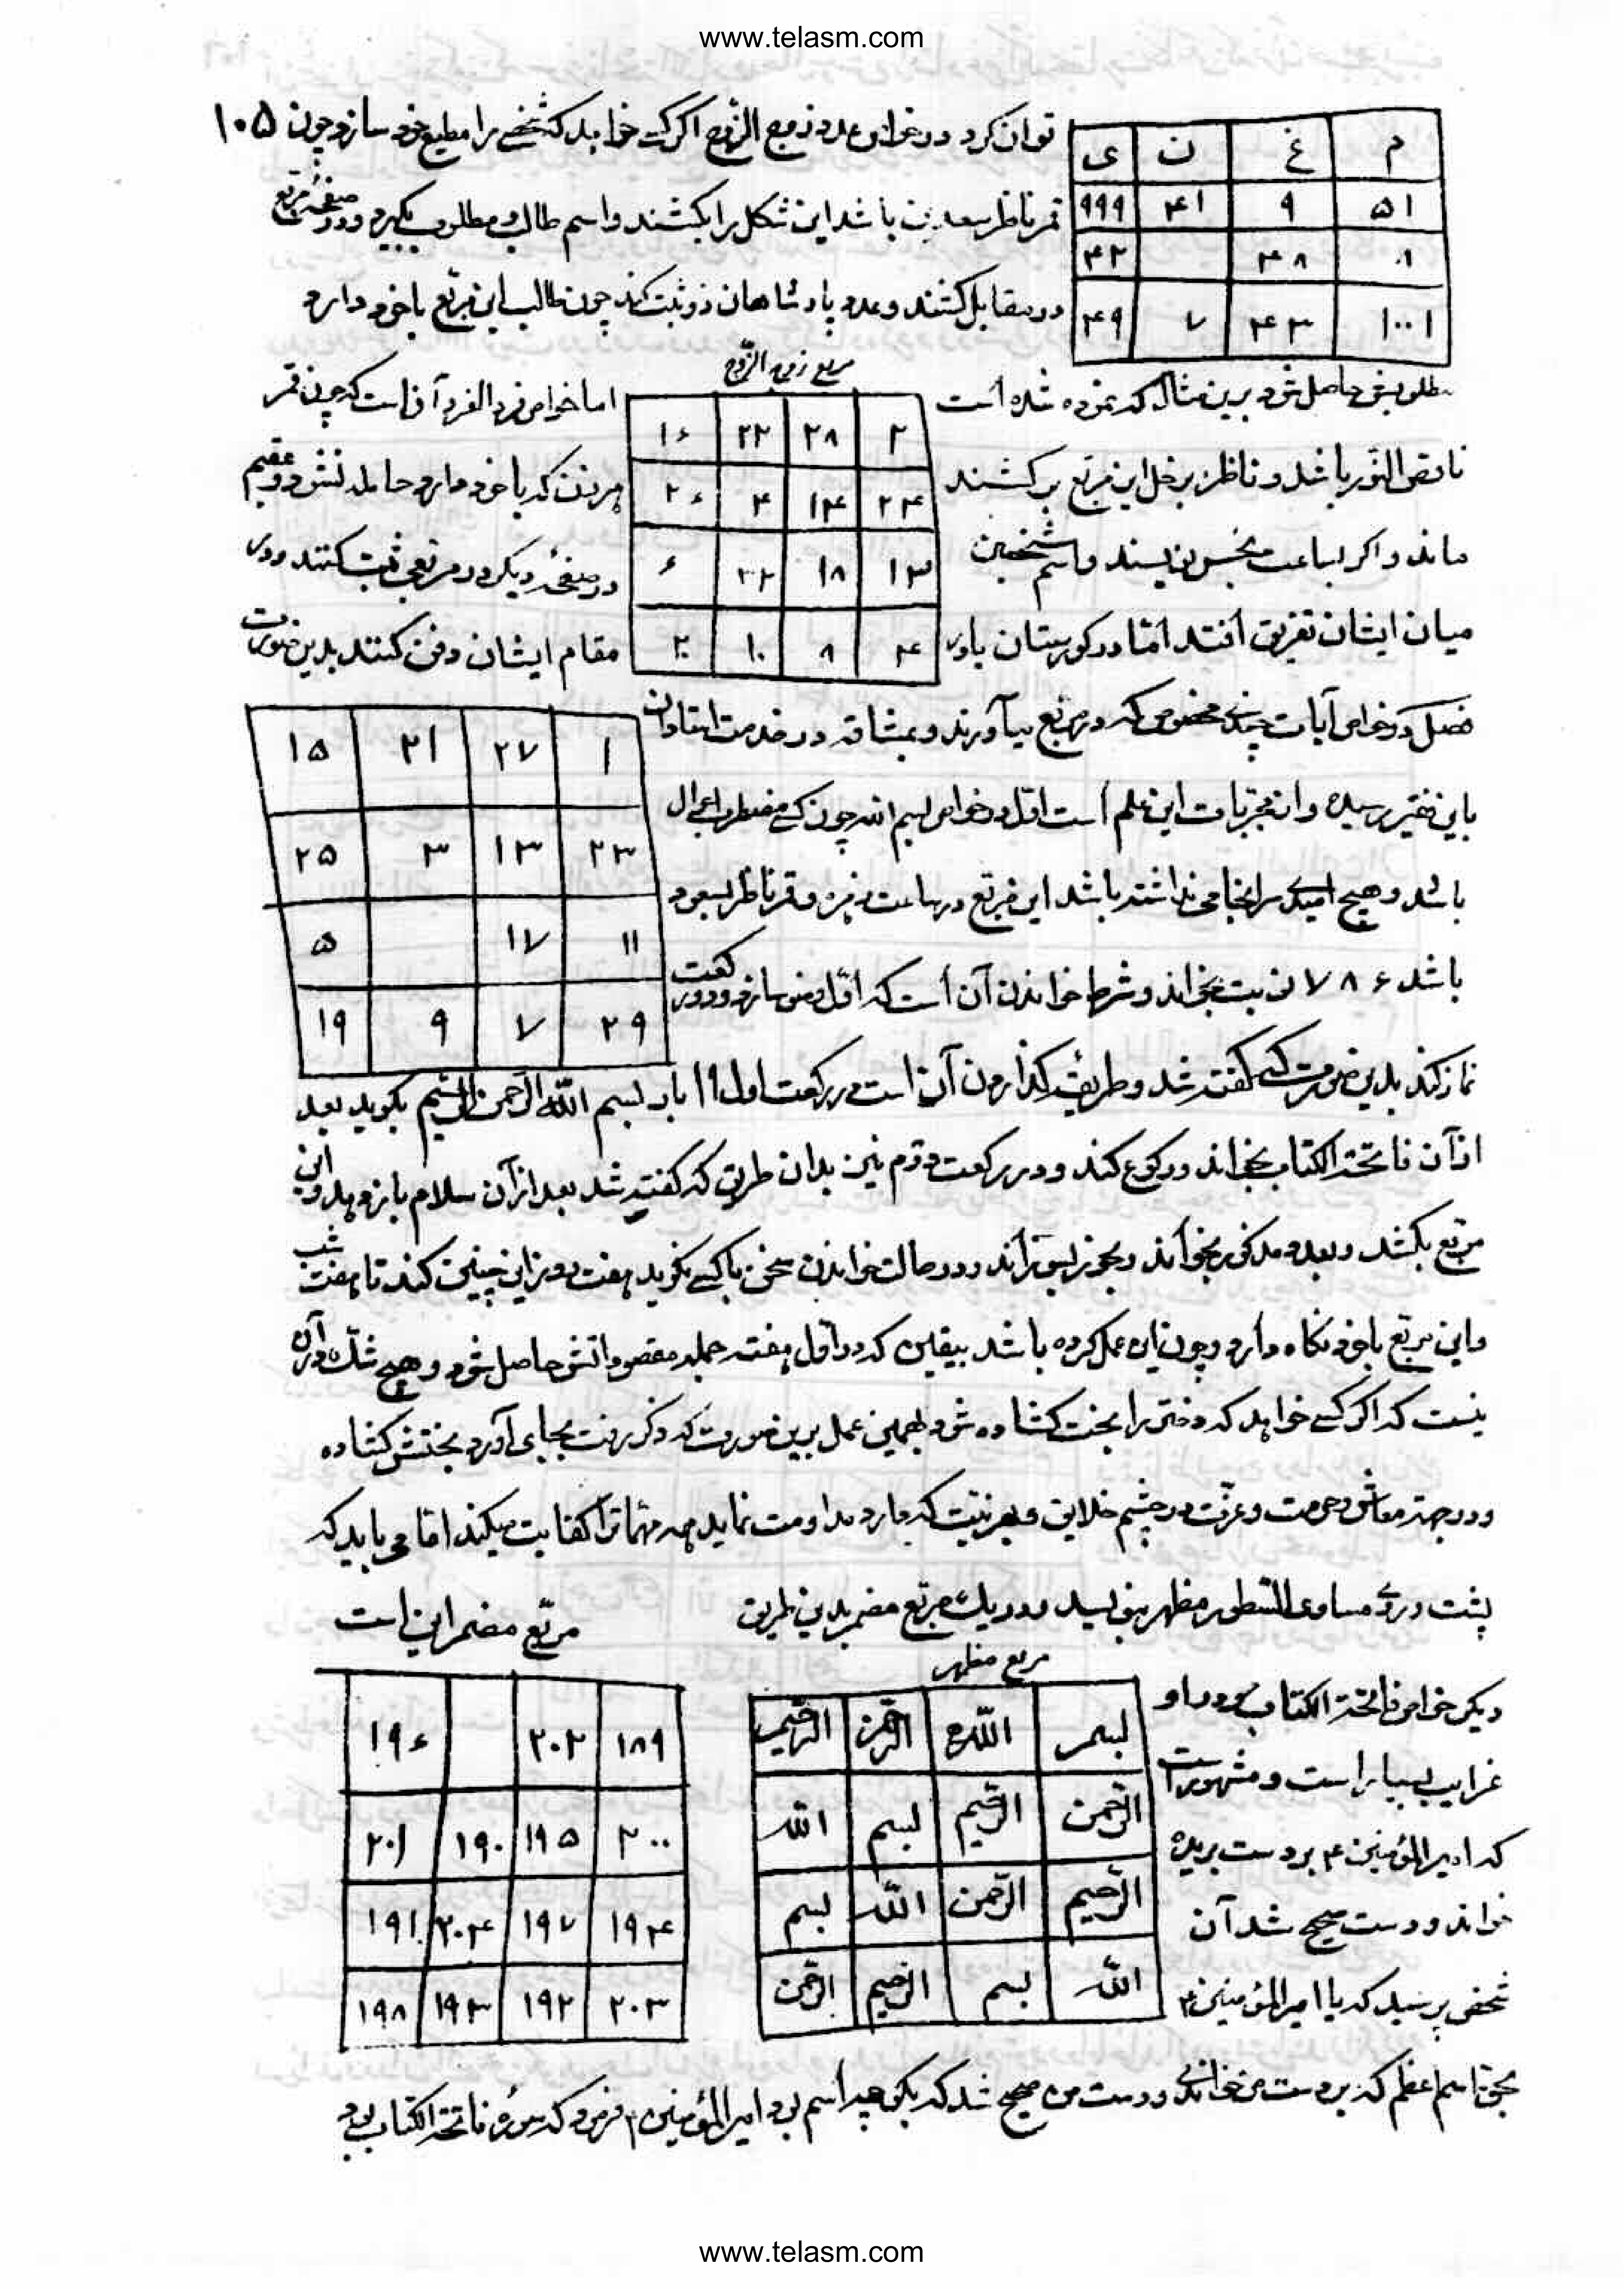 www.telasm.com
توان کرد در خواص عدد زوج الزوج اگر کسی خواهد که شخصی را مطیع خود سازد چون ۱۰۵
م غ ن ی
۵۱ ۹ ۴۱ ۹۹۹
۸ ۴۸ ۴۲
۱۰۰۱ ۴۳ ۷ ۴۹
قمر ناظر سعدین باشد این شکل را بکشند و اسم طالب و مطلوب بگیرد و در صفحه مربع
در مقابل کشند و عدد پادشاهان دو ثبت کند چون طالب این مربع با خود دارد
مطلوبش حاصل شود برین مثال که نموده شده است
مربع زوج الزوج
۲ ۲۸ ۲۲ ۱۶
۲۴ ۱۴ ۴ ۲۶
۱۲ ۱۸ ۳۲ ۶
۴ ۸ ۱۰ ۲۰
اما خواص فرد الفرد آن است که چون قمر
ناقص النور باشد و ناظر بزحل این مربع برکشند هر زن که با خود دارد حامله نشود و عقیم
ماند و اگر بساعت نحس نویسند و اسم شخصین در صفحه دیگر در مربعی ثبت کنند و در
میان ایشان تفریق افتد اما در گورستان یا در مقام ایشان دفن کنند بدین صورت
۱ ۲۷ ۲۱ ۱۵
۲۳ ۱۳ ۳ ۲۵
۱۱ ۱۷ ۵
۲۹ ۷ ۹ ۱۹
فصل در خواص آیات چند مخصوص که در مربع میآورند و بمشافه در خدمت استادان
باین فقیر رسیده و از مجربات این علم است اول در خواص بسم الله چون کسی مضطرب احوال
باشد و هیچ امیدی سرانجامی نداشته باشد این مربع در ساعت زهره و قمر ناظر بسعود
باشد ۷۸۶ نوبت بخواند و شرط خواندن آن است که اول وضو سازد و دو رکعت
نماز کند بدین صورت که گفته شد و طریقه گذاردن آن است در رکعت اول ۱۹ بار بسم الله الرحمن الرحیم بگوید بعد
از آن فاتحة الکتاب بخواند و رکوع کند و در رکعت دوم نیز بدان طریق که گفته شد بعد از آن سلام باز دهد و این
مربع بکشد و بعدد مذکور بخواند و بخور بسوزاند و در حالت خواندن سخن با کسی نگوید هفت روز این چنین کند تا هفت شب
و این مربع با خود نگاه دارد و چون این عمل کرده باشد بیقین که در اول هفته جمله مقصوداتش حاصل شود و هیچ شک در آن
نیست که اگر کسی خواهد که دختری را بخت گشاده شود بهمین عمل برین صورت که ذکر رفت بجای آورد بختش گشاده
و در جهة معاش و حرمت و عزت در چشم خلایق و بهر نیت که دارد مداومت نماید همه مهمات را کفایت میکند اما می باید که
پشت و روی مساوی السطور مظهر بنویسد و در یک مربع مضمر بدین طریق
مربع مضمر این است
مربع مظهر
بسم الله الرحمن الرحیم
الرحمن الرحیم بسم الله
الرحیم الرحمن الله بسم
الله بسم الرحیم الرحمن
۱۸۹ ۲۰۲ ۱۹۶
۲۰۰ ۱۹۵ ۱۹۰ ۲۰۱
۱۹۴ ۱۹۷ ۲۰۴ ۱۹۱
۲۰۳ ۱۹۲ ۱۹۳ ۱۹۸
دیگر خواص فاتحة الکتاب و در او
غرایب بسیار است و مشهور است
که امیر المؤمنین ۴ بر دست بریده
خواند و دست صحیح شد آن
شخص پرسید که یا امیر المؤمنین ۴
بحق اسم اعظم که بر دست من خواندی و دست من صحیح شد که بگو چه اسم بود امیر المؤمنین ۴ فرمود که سوره فاتحة الکتاب بود
www.telasm.com